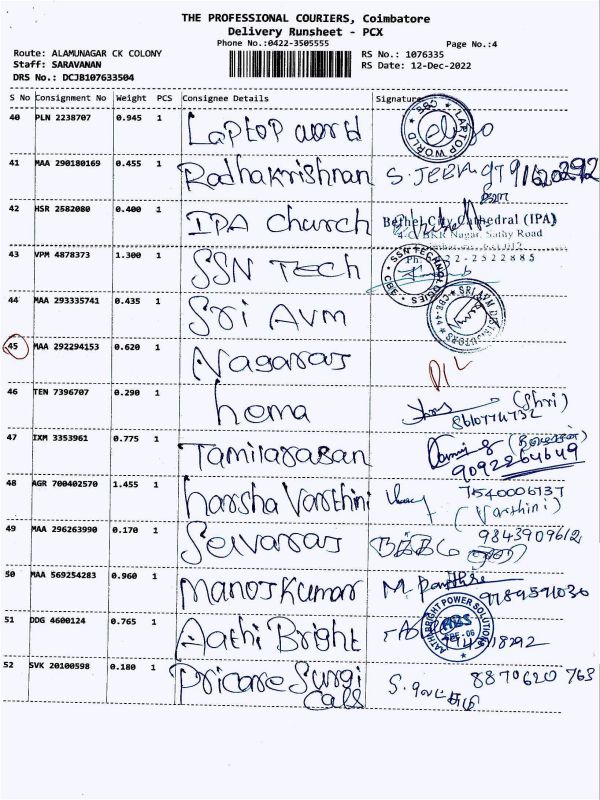 THE PROFESSIONAL COURIERS, Coimbatore
Delivery Runsheet - PCX
Phone No.:0422-3505555 Page No.:4
Route: ALAMUNAGAR CK COLONY RS No.: 1076335
Staff: SARAVANAN RS Date: 12-Dec-2022
DRS No.: DCJB107633504
S No Consignment No Weight PCS Consignee Details Signature
40 PLN 2238707 0.945 1 Laptop world LAPTOP WORLD
41 MAA 290180169 0.455 1 Radhakrishnan S. JEEVA
42 HSR 2582080 0.400 1 IPA church Bethel City Cathedral (IPA)
4-C, BKR Nagar, Sathy Road
43 VPM 4878373 1.300 1 SSN Tech SSN TECHNOLOGIES CBE
44 MAA 293335741 0.435 1 Sri AVM SRI AVM
45 MAA 292294153 0.620 1 Nagaraj D/L
46 TEN 7396707 0.290 1 hema (Shri)
47 IXM 3353961 0.775 1 Tamilarasan 9092264649
48 AGR 700402570 1.455 1 harsha Varthini 7540006737
(Varthini)
49 MAA 296263990 0.170 1 Selvaraj 9843909612
50 MAA 569254283 0.960 1 Manoj Kumar 9789591036
51 DDG 4600124 0.765 1 Aathi Bright AATHI BRIGHT POWER SOLUTIONS
52 SVK 20100598 0.180 1 Pricare Surgi 8870620763
Cals